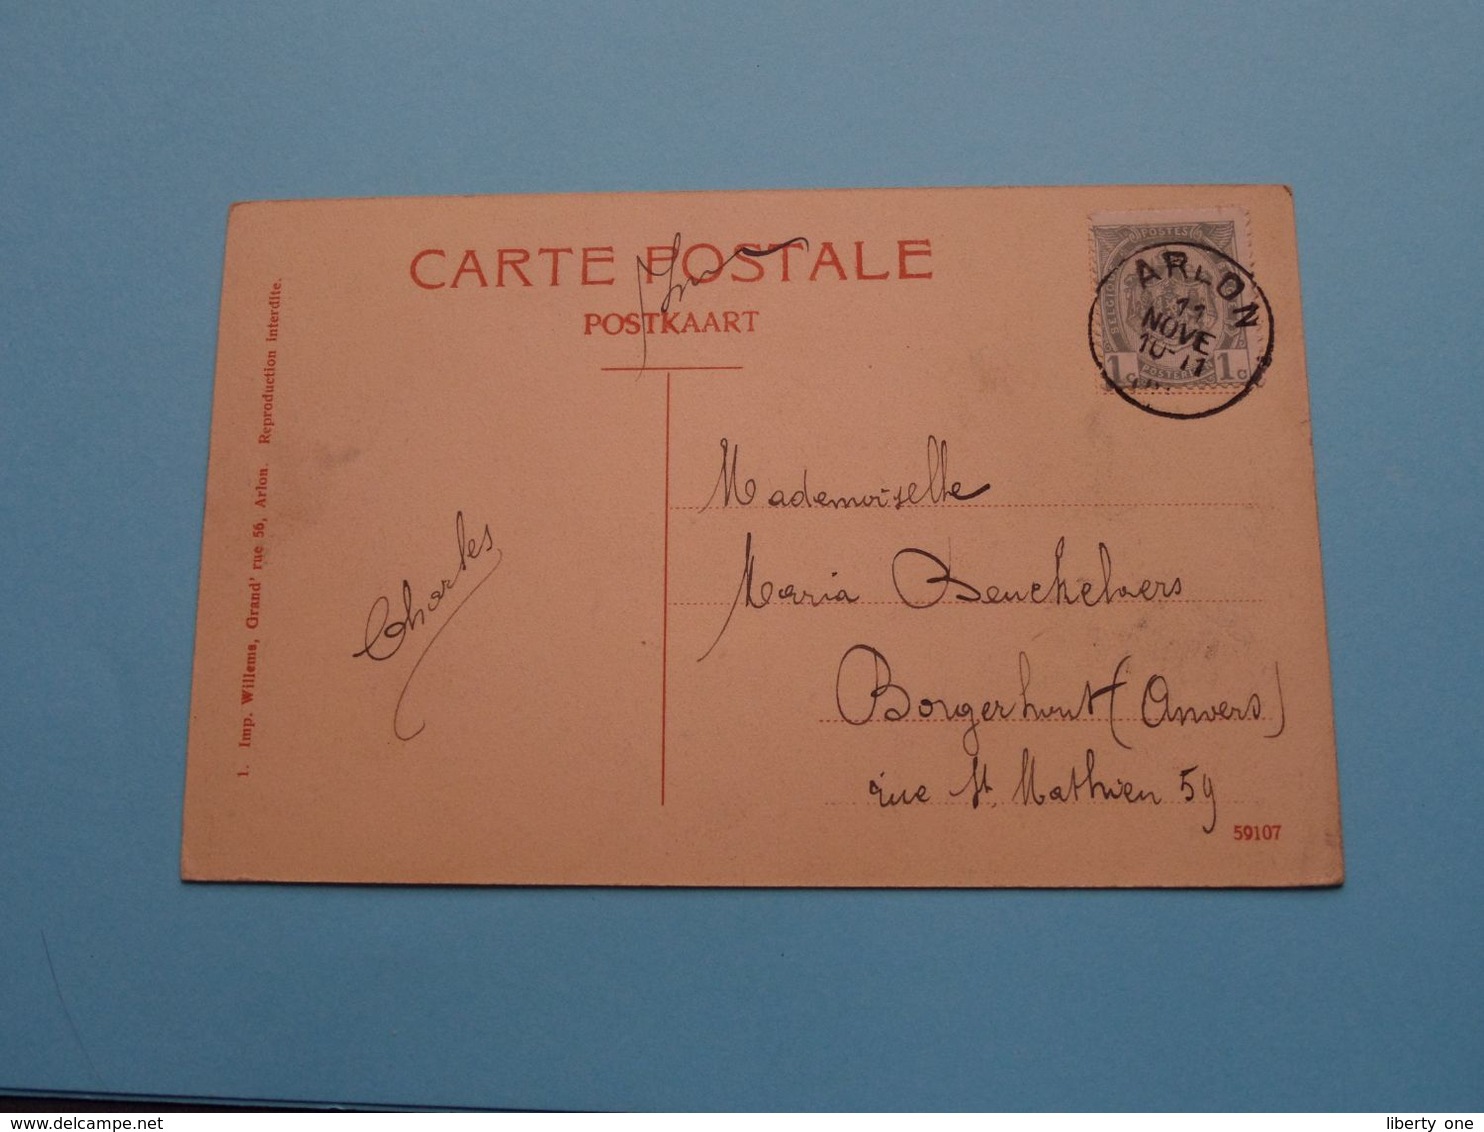 CARTE POSTALE
POSTKAART
1. Imp. Willems, Grand' rue 56, Arlon. Reproduction Interdite.
POSTES
BELGIQUE
1 c 1 c
ARLON
11
NOVE
10-11
Charles
Mademoiselle
Maria Beuckelaers
Borgerhout (Anvers)
rue St. Mathieu 59
59107
delcampe.net
liberty one